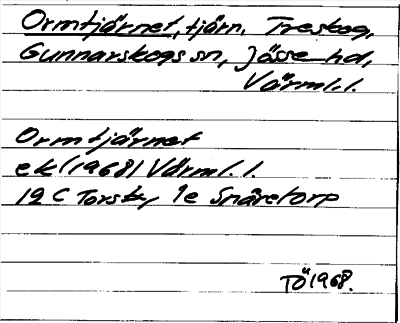 Ormtjärnet, tjärn, Treskog,
Gunnarskogs sn, Jösse hd,
Värml.l.
Ormtjärnet
ek (1968) Värml. l.
12 C Torsby, 1e Snåretorp
TÖ 1968.